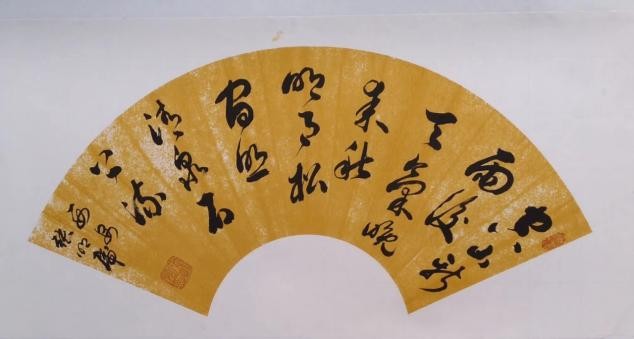 空山新
雨後
天氣晚
来秋
明月松
間照
清泉石
上流